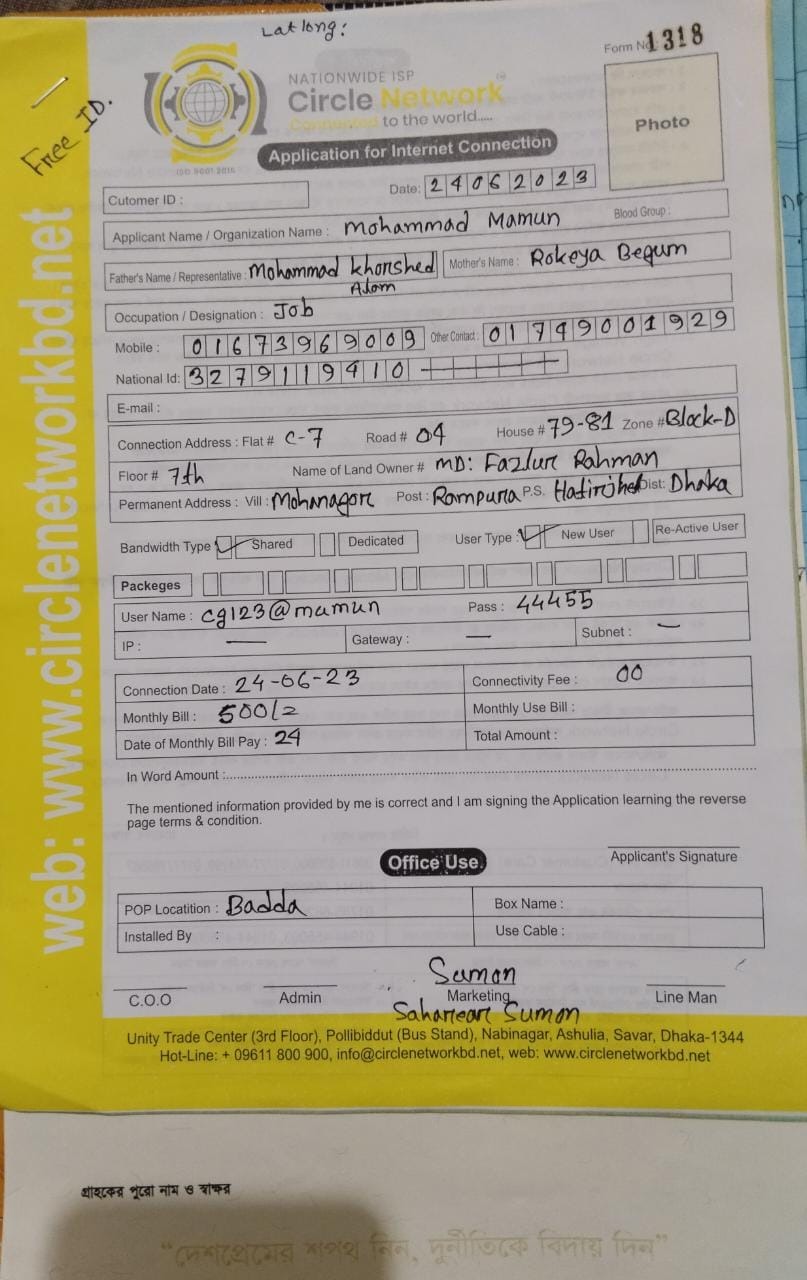 Lat long:
Form No 1318
Free ID.
NATIONWIDE ISP
Circle Network
Connected to the world.....
ISO 9001:2015
Photo
Application for Internet Connection
Date: 24062023
Cutomer ID :
Applicant Name / Organization Name : Mohammad Mamun Blood Group :
Father's Name / Representative : Mohammad Khorshed Alam Mother's Name : Rokeya Begum
Occupation / Designation : Job
Mobile : 01673969009 Other Contact : 01749001929
National Id: 3279119410
E-mail :
Connection Address : Flat # C-7 Road # 04 House # 79-81 Zone # Block-D
Floor # 7th Name of Land Owner # MD: Fazlur Rahman
Permanent Address : Vill : Mohanagor Post : Rampura P.S. Hatirjheel Dist: Dhaka
Bandwidth Type Shared Dedicated User Type : New User Re-Active User
Packeges
User Name : cg123@mamun Pass : 44455
IP : — Gateway : — Subnet : —
Connection Date : 24-06-23 Connectivity Fee : 00
Monthly Bill : 500/= Monthly Use Bill :
Date of Monthly Bill Pay : 24 Total Amount :
In Word Amount :
The mentioned information provided by me is correct and I am signing the Application learning the reverse
page terms & condition.
Applicant's Signature
Office Use
POP Locatition : Badda Box Name :
Installed By : Use Cable :
Suman
C.O.O Admin Marketing Line Man
Saharear Sumon
Unity Trade Center (3rd Floor), Pollibiddut (Bus Stand), Nabinagar, Ashulia, Savar, Dhaka-1344
Hot-Line: + 09611 800 900, info@circlenetworkbd.net, web: www.circlenetworkbd.net
web: www.circlenetworkbd.net
গ্রাহকের পুরো নাম ও স্বাক্ষর
“দেশপ্রেমের শপথ নিন, দুর্নীতিকে বিদায় দিন”